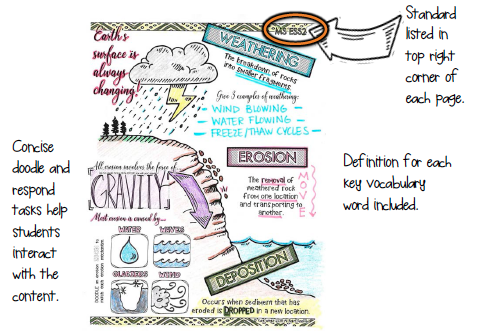 Standard
listed in
top right
corner of
each page.
MS ESS2
Earth's
surface is
always
changing!
WEATHERING
The breakdown of rocks
into smaller fragments.
Give 3 examples of weathering:
WIND BLOWING
WATER FLOWING
FREEZE/THAW CYCLES
Concise
doodle and
respond
tasks help
students
interact
with the
content.
All erosion involves the force of
GRAVITY
Most erosion is caused by...
WATER
WAVES
GLACIERS
WIND
EROSION
The removal of
weathered rock
from one location
and transporting to
another.
MOVE
Definition for each
key vocabulary
word included.
DEPOSITION
Occurs when sediment that has
eroded is DROPPED in a new location.